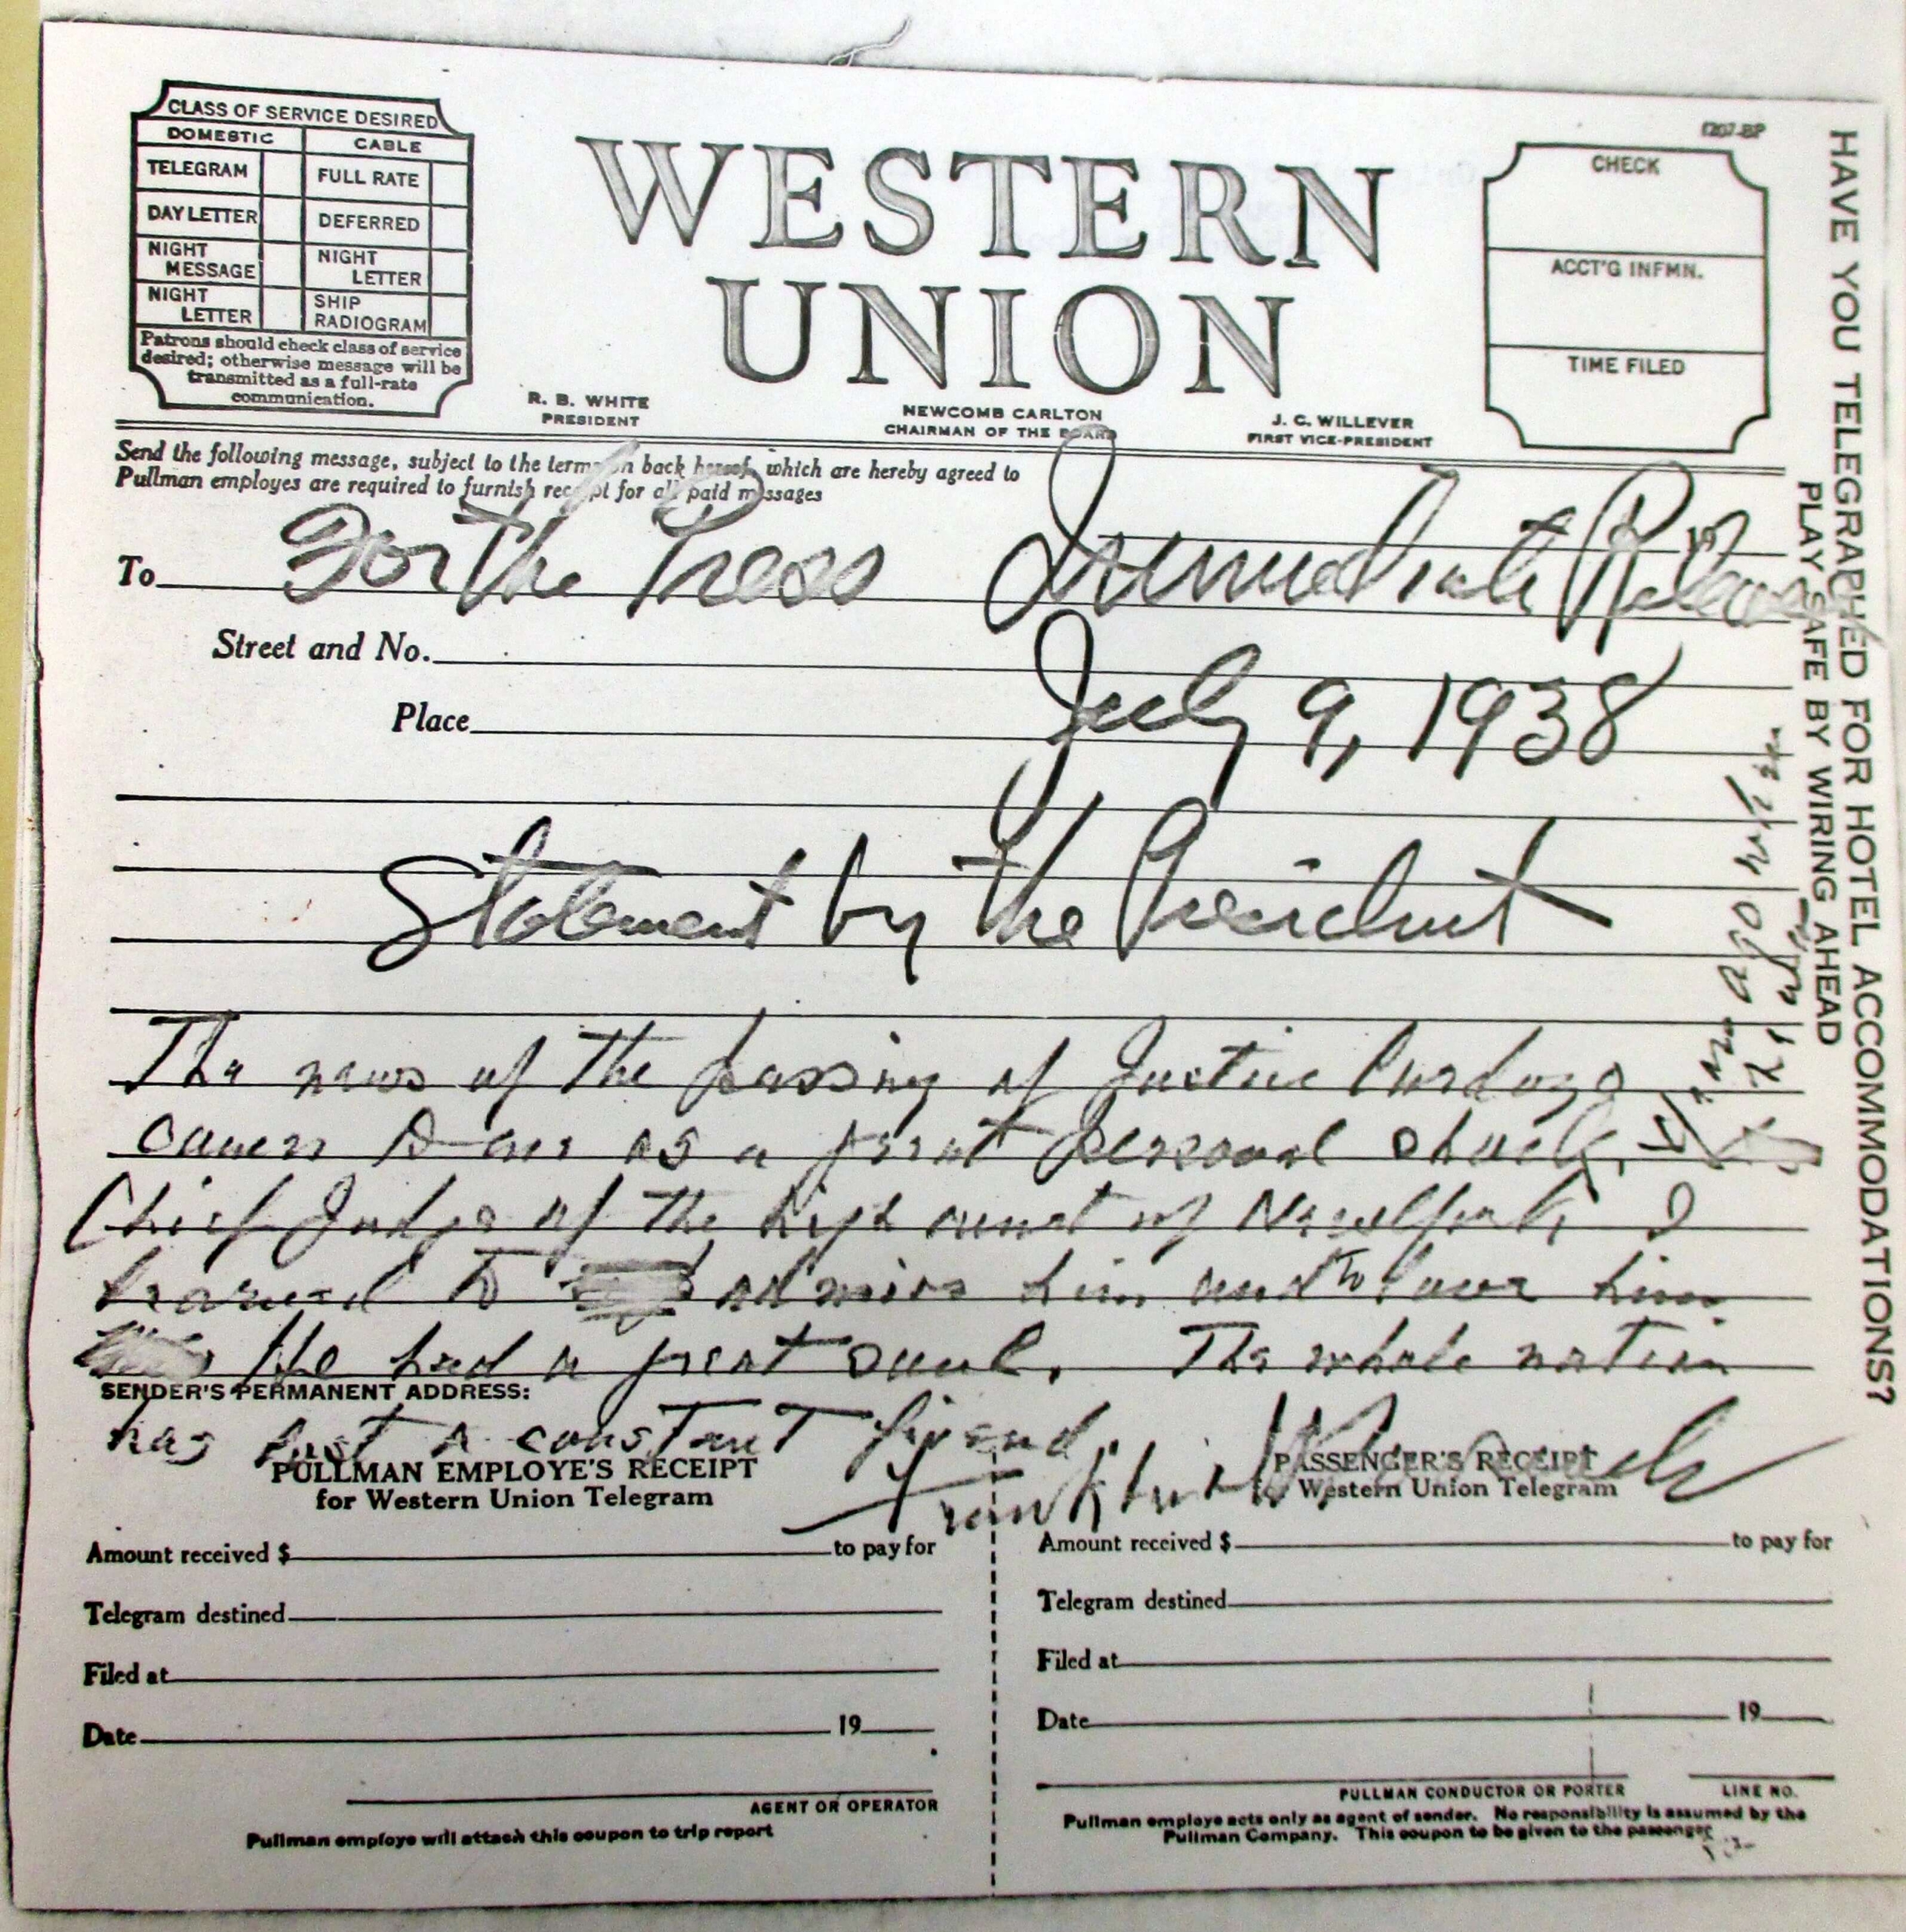 1207-BP
CLASS OF SERVICE DESIRED
DOMESTIC CABLE
TELEGRAM FULL RATE
DAY LETTER DEFERRED
NIGHT MESSAGE NIGHT LETTER
NIGHT LETTER SHIP RADIOGRAM
Patrons should check class of service
desired; otherwise message will be
transmitted as a full-rate
communication.
WESTERN
UNION
R. B. WHITE
PRESIDENT
NEWCOMB CARLTON
CHAIRMAN OF THE BOARD
J. C. WILLEVER
FIRST VICE-PRESIDENT
CHECK
ACCT'G INFMN.
TIME FILED
HAVE YOU TELEGRAPHED FOR HOTEL ACCOMMODATIONS?
PLAY SAFE BY WIRING AHEAD
Send the following message, subject to the terms on back hereof, which are hereby agreed to
Pullman employes are required to furnish receipt for all paid messages
To For the Press Immediate Release
Street and No.
Place July 9, 1938
Statement by the President
The news of the passing of Justice Cardozo
comes to me as a great personal shock.
Chief Judge of the high court of New York I
learned to admire him and to love him
He had a great soul. The whole nation
SENDER'S PERMANENT ADDRESS:
has lost a constant friend.
PULLMAN EMPLOYE'S RECEIPT
for Western Union Telegram
Amount received $ to pay for
Telegram destined
Filed at
Date 19
AGENT OR OPERATOR
Pullman employe will attach this coupon to trip report
Franklin
PASSENGER'S RECEIPT
Western Union Telegram
Amount received $ to pay for
Telegram destined
Filed at
Date 19
PULLMAN CONDUCTOR OR PORTER LINE NO.
Pullman employe acts only as agent of sender. No responsibility is assumed by the
Pullman Company. This coupon to be given to the passenger